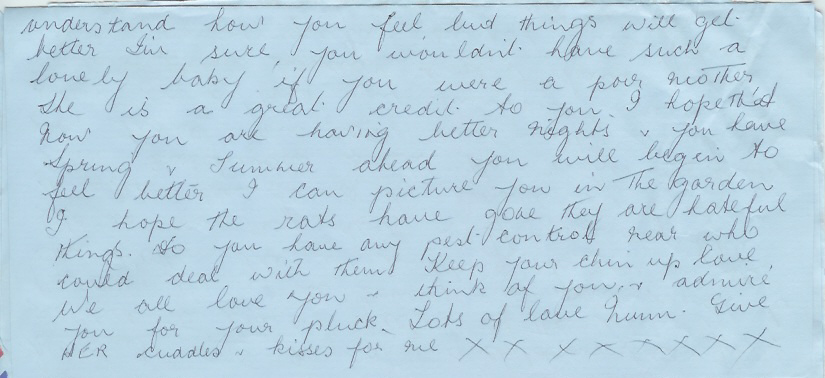 understand how you feel but things will get
better I'm sure, you wouldn't have such a
lovely baby if you were a poor mother
she is a great credit to you. I hope that
now you are having better nights & you have
Spring & Summer ahead you will begin to
feel better I can picture you in the garden
I hope the rats have gone they are hateful
things. Do you have any pest control near who
could deal with them Keep your chin up love
We all love you & think of you & admire
you for your pluck. Lots of love Mum. Give
HER cuddles & kisses for me X X X X X X X X